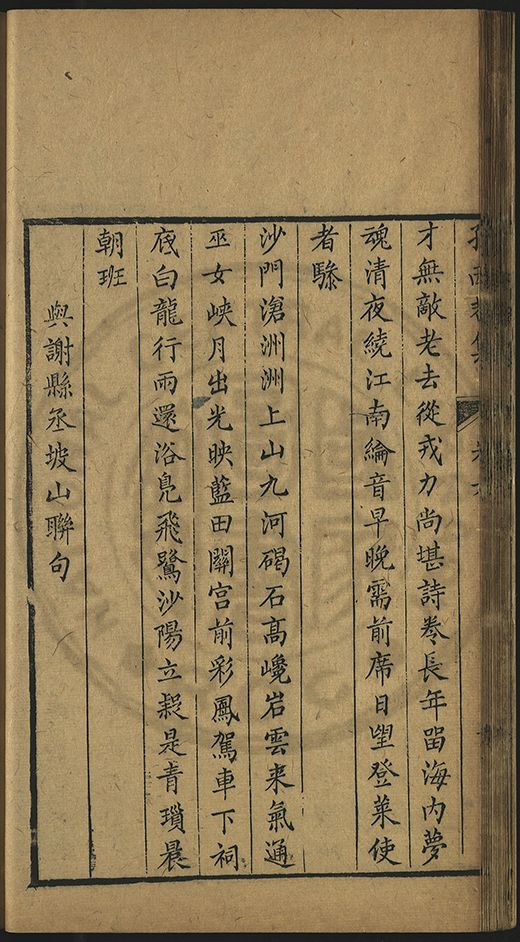 才無敵老去從戎力尚堪詩卷長年畱海内夢
魂清夜繞江南綸音早晚需前席日望登萊使
者驂
沙門滄洲洲上山九河碣石高巉岩雲来氣通
巫女峽月出光映藍田關宮前彩鳳駕車下祠
底白龍行雨還浴鳧飛鷺沙陽立疑是青瑣晨
朝班
與謝縣丞坡山聯句